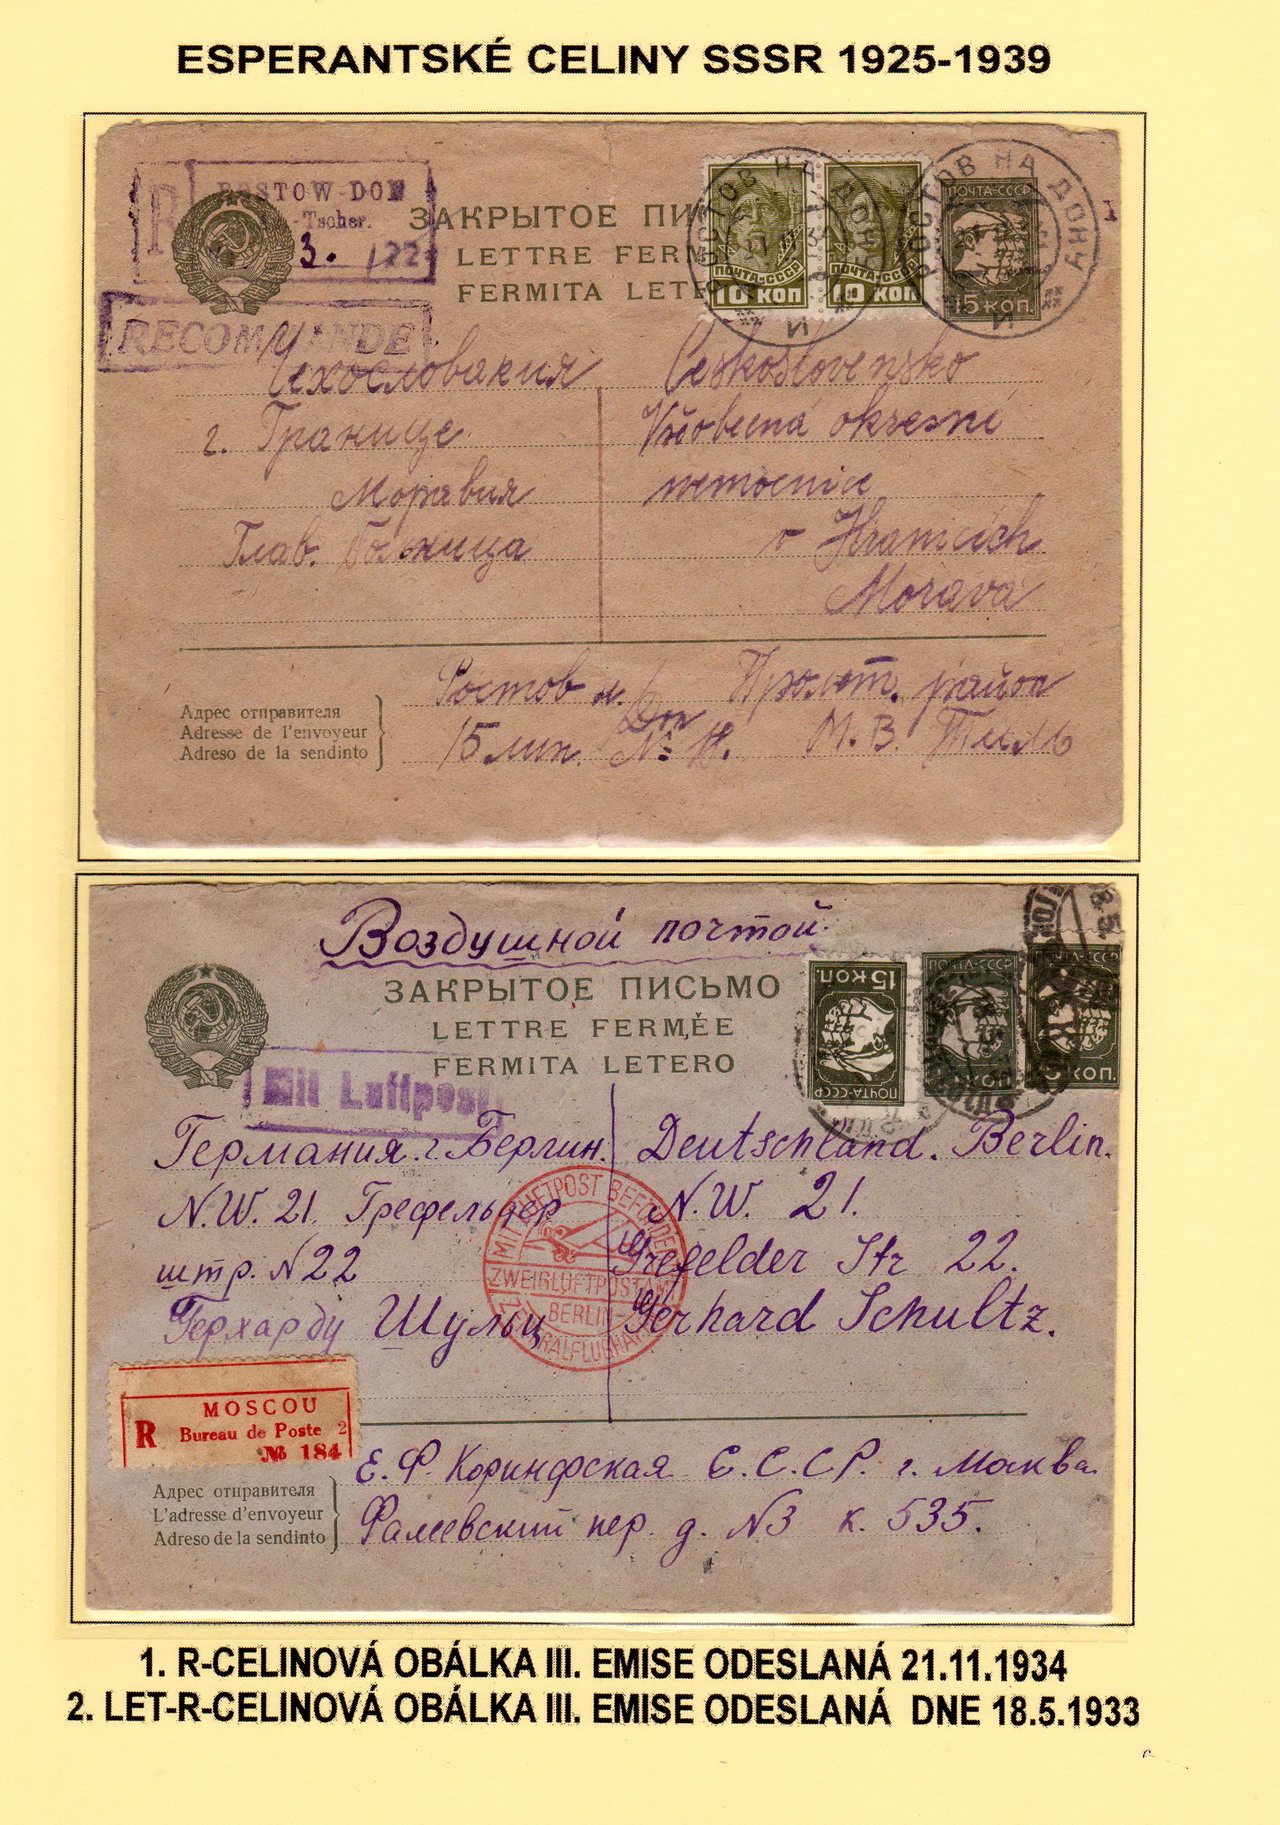 ESPERANTSKÉ CELINY SSSR 1925-1939
R
ROSTOW-DON
-Tscher.
3. 122
ЗАКРЫТОЕ ПИС
LETTRE FERM
FERMITA LETE
RECOMMANDE
РОСТОВ НА ДОНУ
РОСТОВ НА ДОНУ
ПОЧТА-СССР
10 КОП
ПОЧТА-СССР
10 КОП
ПОЧТА-СССР
15 КОП.
Чехословакия
г. Границе
Моравия
Глав. Больница
Československo
Všeobecná okresní
nemocnice
v Hranicích
Morava
Адрес отправителя
Adresse de l'envoyeur
Adreso de la sendinto
Ростов н. Дон Пролет. район
15 лин. № М.В. Тиль
Воздушной почтой.
ЗАКРЫТОЕ ПИСЬМО
LETTRE FERMÉE
FERMITA LETERO
ПОЧТА-СССР
15 КОП.
ПОЧТА-СССР
КОП.
Mit Luftpost
Германия г. Берлин.
N.W. 21. Грефельдер
штр. N 22
Герхарду Шульц
Deutschland. Berlin.
N.W. 21.
Grefelder Str 22.
Gerhard Schultz.
MIT LUFTPOST BEFÖRDERT
ZWEIGLUFTPOSTAMT
BERLIN
ZENTRALFLUGHAFEN
MOSCOU
R Bureau de Poste 2
№ 184
Адрес отправителя
L'adresse d'envoyeur
Adreso de la sendinto
Е.Ф. Коринфская С.С.С.Р. г. Москва.
Фалеевский пер. д. N3 к. 535.
1. R-CELINOVÁ OBÁLKA III. EMISE ODESLANÁ 21.11.1934
2. LET-R-CELINOVÁ OBÁLKA III. EMISE ODESLANÁ DNE 18.5.1933